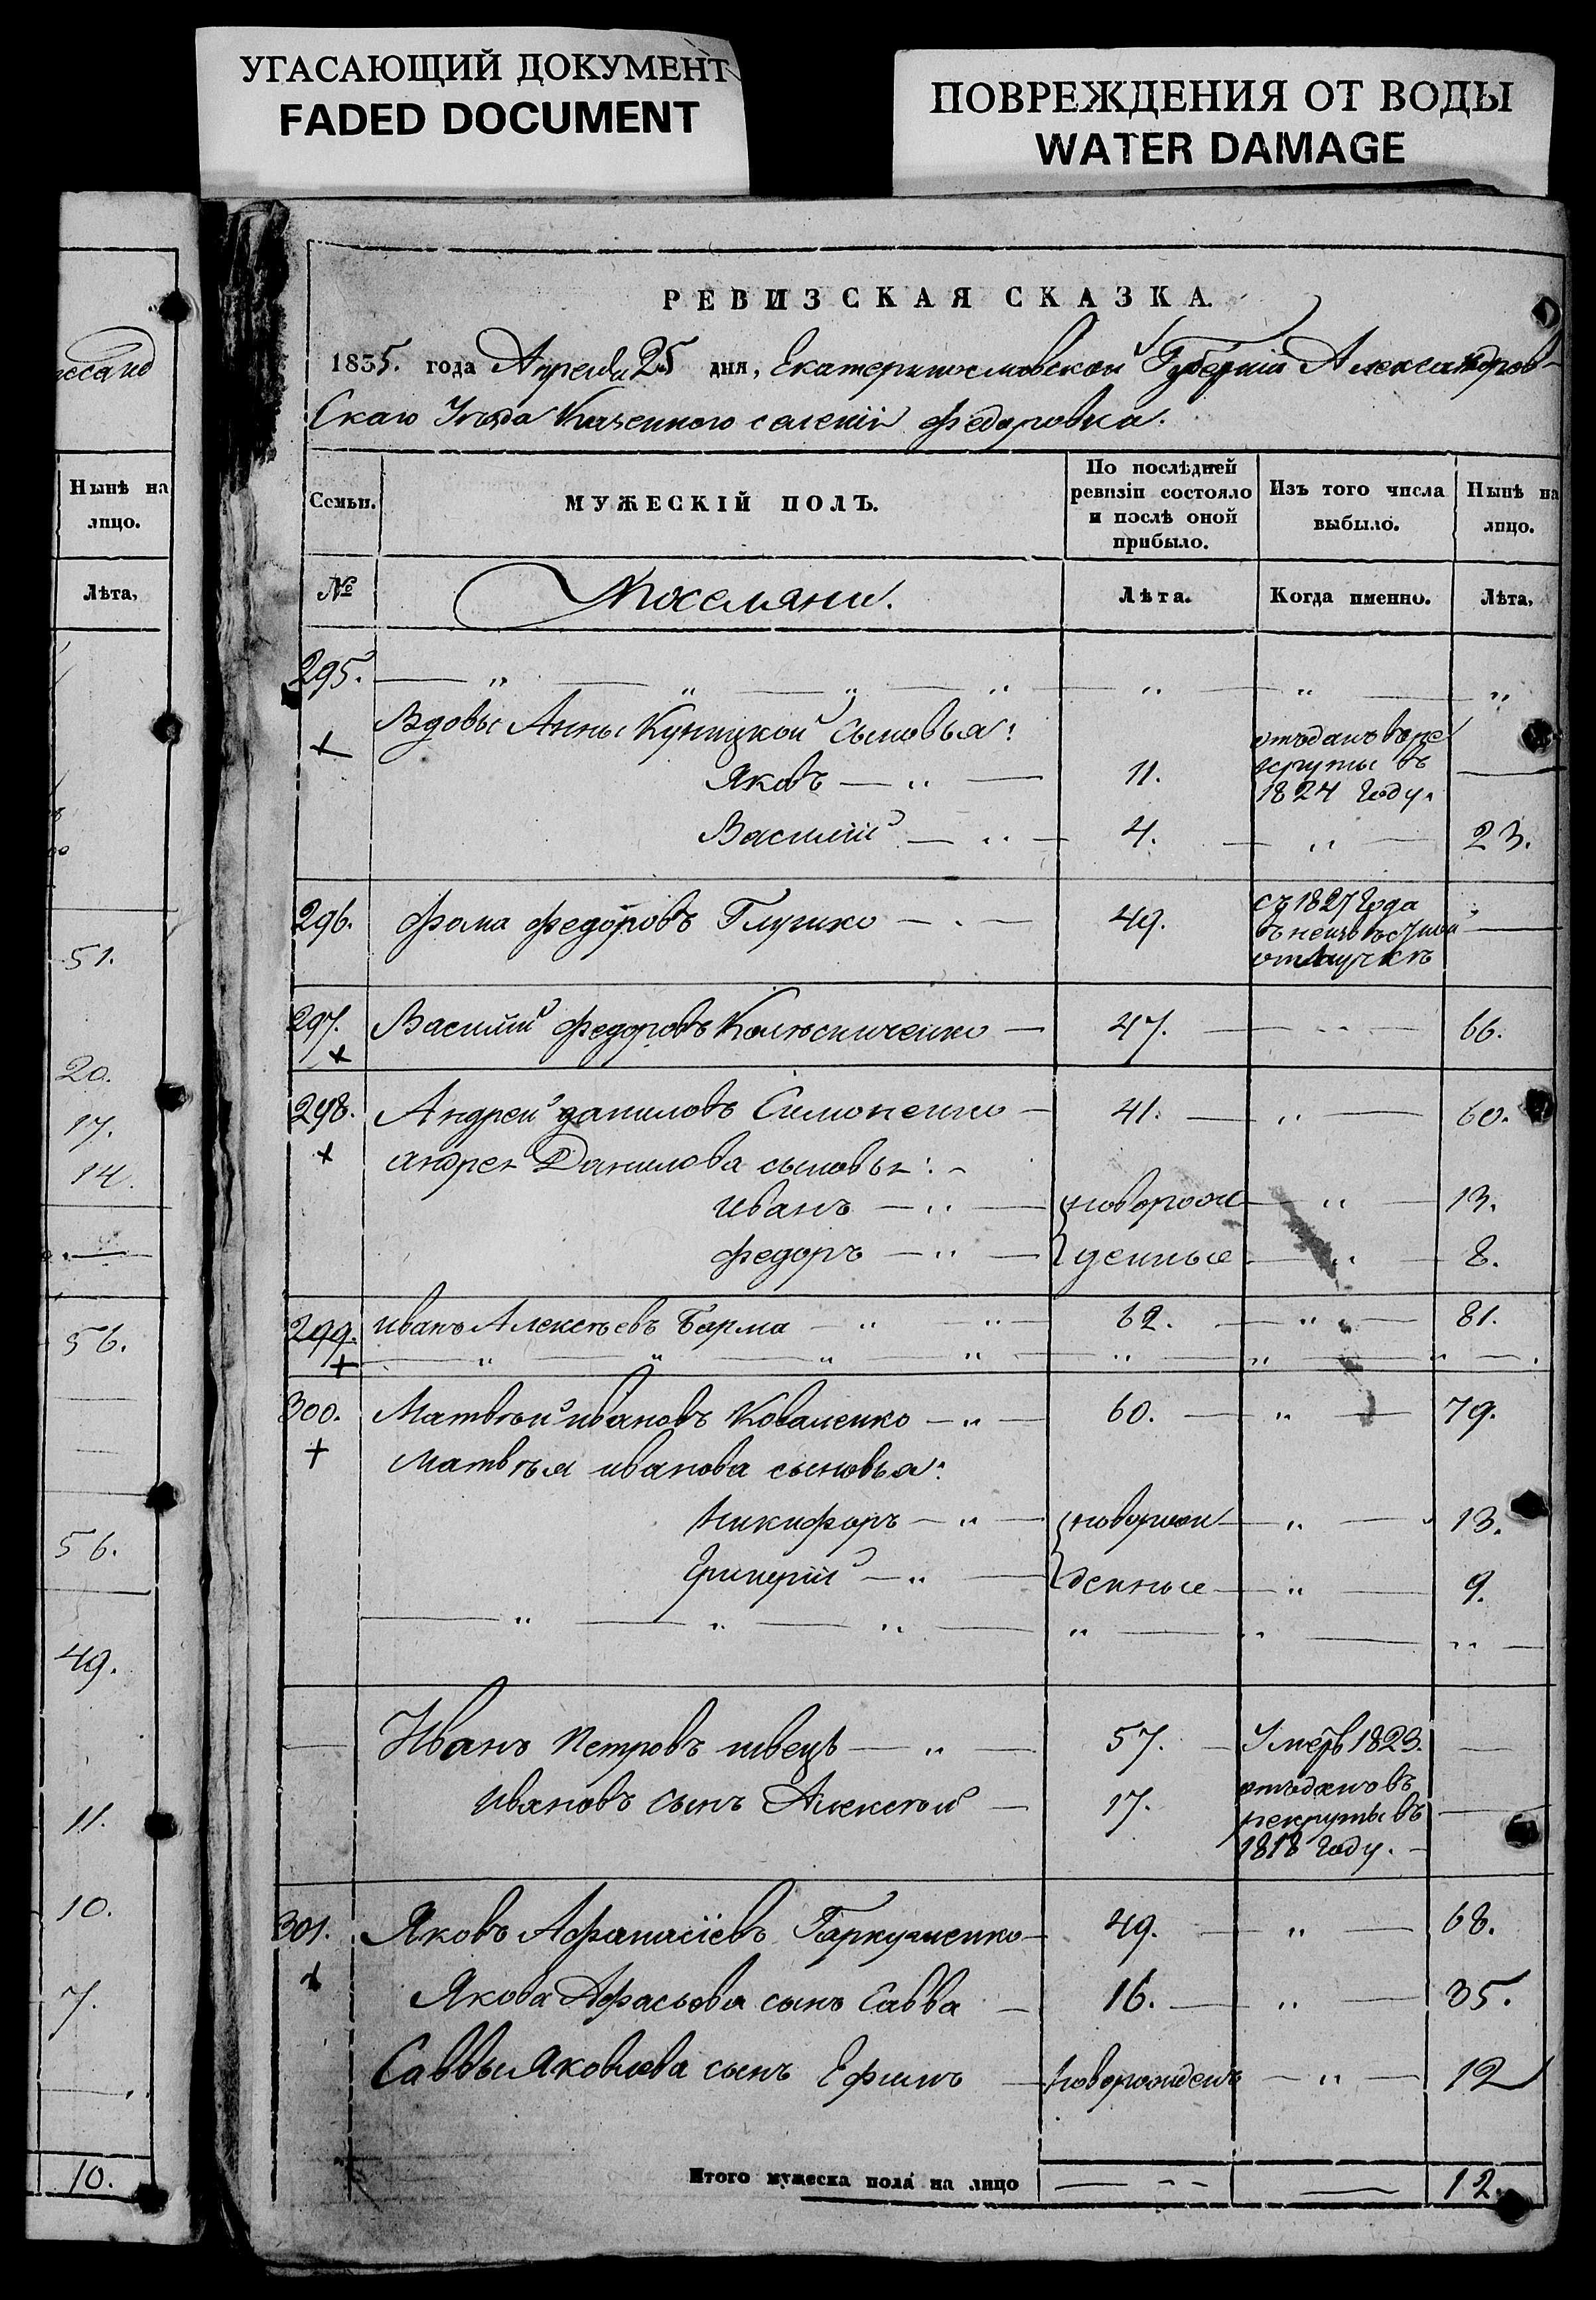 УГАСАЮЩИЙ ДОКУМЕНТ
FADED DOCUMENT
ПОВРЕЖДЕНИЯ ОТ ВОДЫ
WATER DAMAGE
Нынѣ на
лицо.
Лѣта,
51.
20.
17.
14.
56.
56.
49.
11.
10.
7.
10.
РЕВИЗСКАЯ СКАЗКА.
1835. года Апреля 25 дня, Екатеринославской Губерніи Александров-
скаго Уѣзда Казенного селенія Федоровка.
Семьи.
МУЖЕСКІЙ ПОЛЪ.
По послѣдней
ревизіи состояло
и послѣ оной
прибыло.
Изъ того числа
выбыло.
Нынѣ на
лицо.
№
Поселяни.
Лѣта.
Когда именно.
Лѣта,
295. — „ — „ — „ — „ — „ — „ — „
Вдовы Анны Куницкой Сыновья:
Яковъ — „ — 11. отъданъ въ ре
круты въ
1824 Году. —
Василій — „ — 4. — „ — 23.
296. Фома Федоровъ Глушко — „ — 49. съ 1827 Года
въ неизвѣстной
отлучкѣ —
297. Василій Федоровъ Колѣсниченко — 47. — „ — 66.
298. Андрей Даниловъ Симоненко — 41. — „ — 60.
Андрея Данилова сыновья: —
Иванъ — „ — новорож — „ — 13.
Федоръ — „ — денные — „ — 8.
299. Иванъ Алексѣевъ Барма — „ — „ — 62. — „ — 81.
— „ — „ — „ — „ — „ — „ — „ —
300. Матвѣй Ивановъ Коваленко — „ — 60. — „ — 79.
Матвѣя Иванова сыновья:
Никифоръ — „ — новорож — „ — 13.
Григорій — „ — денные — „ — 9.
— „ — „ — „ — „ — „ — „ —
— Иванъ Петровъ швецъ — „ — 57. — Умеръ 1823. —
Ивановъ сынъ Алексѣй — 17. отъданъ въ
рекруты въ
1818 Году. —
301. Яковъ Афанасіевъ Гаркушенко — 49. — „ — 68.
Якова Афасьова сынъ Савва — 16. — „ — 35.
Саввы Яковлева сынъ Ефимъ — новорожденъ — „ — 12
Итого мужеска пола на лицо — „ — 12.